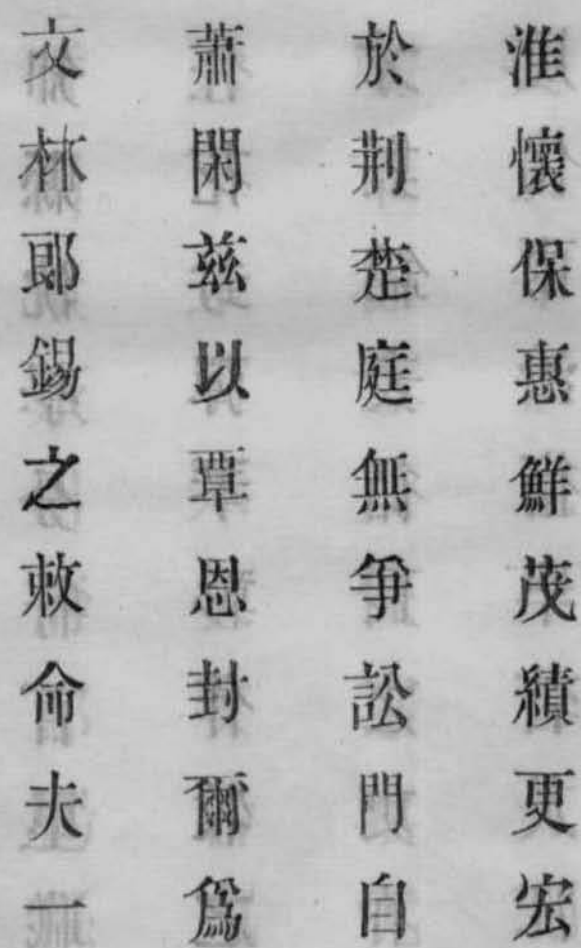 淮懷保惠鮮茂績更宏
於荆楚庭無爭訟門自
蕭閑兹以覃恩封爾爲
文林郎錫之敕命夫一